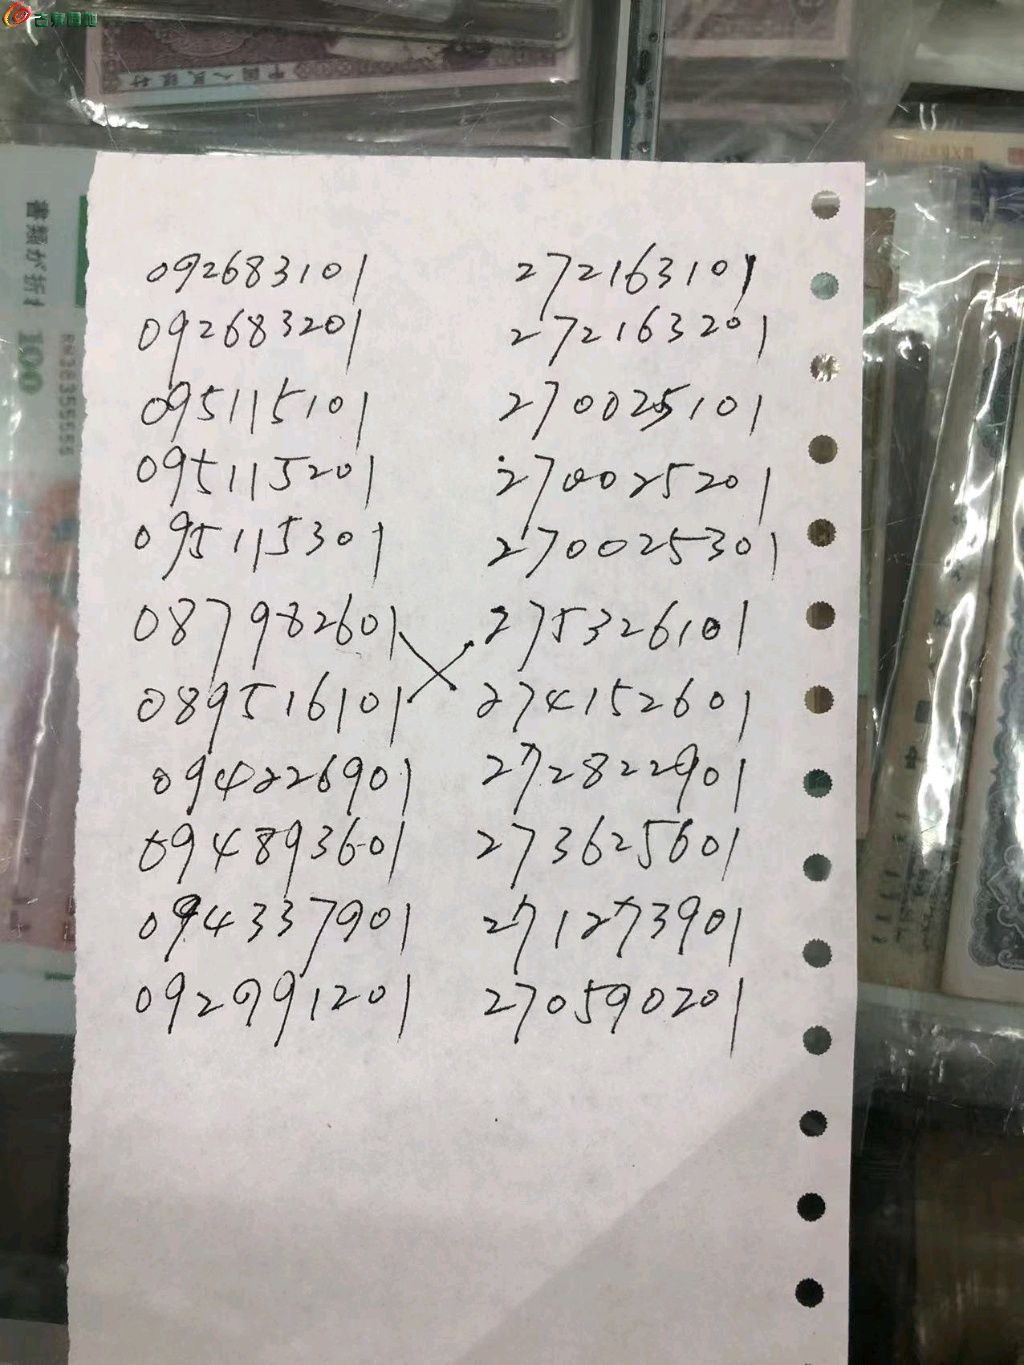 古泉园地
中国人民银行
書類が折れ
100
092683101 272163101
092683201 272163201
095115101 270025101
095115201 270025201
095115301 270025301
087982601 275326101
089516101 274152601
094226901 272822901
094893601 273625601
094337901 271273901
092991201 270590201